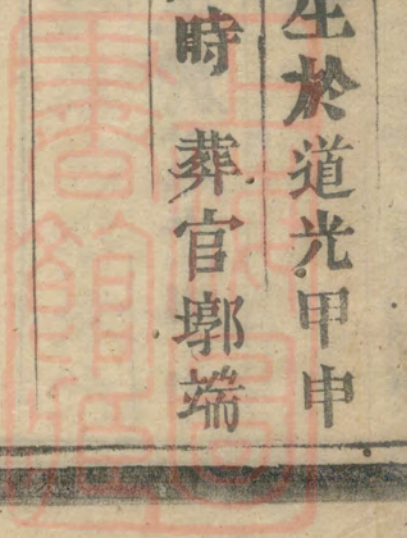 生於道光甲申
時 葬官墎端